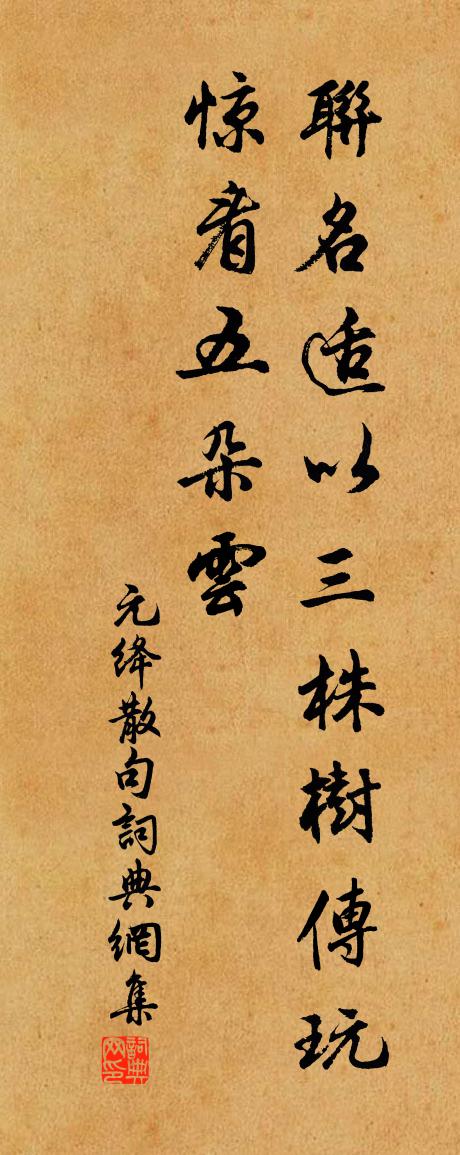 聯名适以三株樹傳玩
惊看五朵雲
元绛散句詞典網集
詞典网印